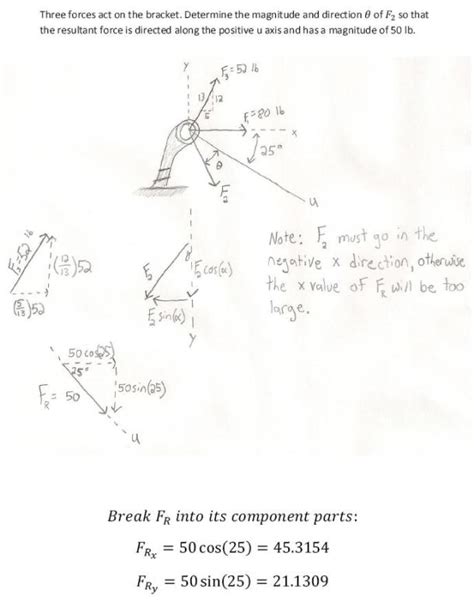 Three forces act on the bracket. Determine the magnitude and direction θ of F₂ so that
the resultant force is directed along the positive u axis and has a magnitude of 50 lb.
Y
F₃=52 lb
13
12
5
F₁=80 lb
x
25°
θ
F₂
u
F₃=52 lb
(12/13)52
(5/13)52
F₂
α
F₂cos(α)
F₂sin(α)
Y
Note: F₂ must go in the
negative x direction, otherwise
the x value of F_R will be too
large.
50cos(25)
25°
F_R = 50
50sin(25)
u
Break F_R into its component parts:
F_Rx = 50 cos(25) = 45.3154
F_Ry = 50 sin(25) = 21.1309